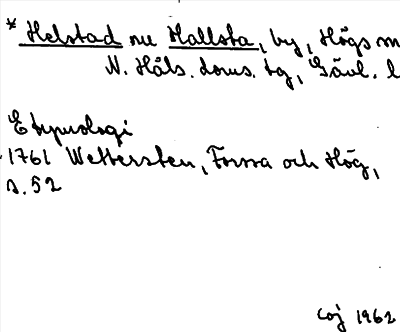 * Helstad nu Hallsta, by, Högs
N. Häls. doms. tg, Gävl. l
Etymologi
1761 Wettersten, Forssa och Hög,
s. 52
Coj 1962